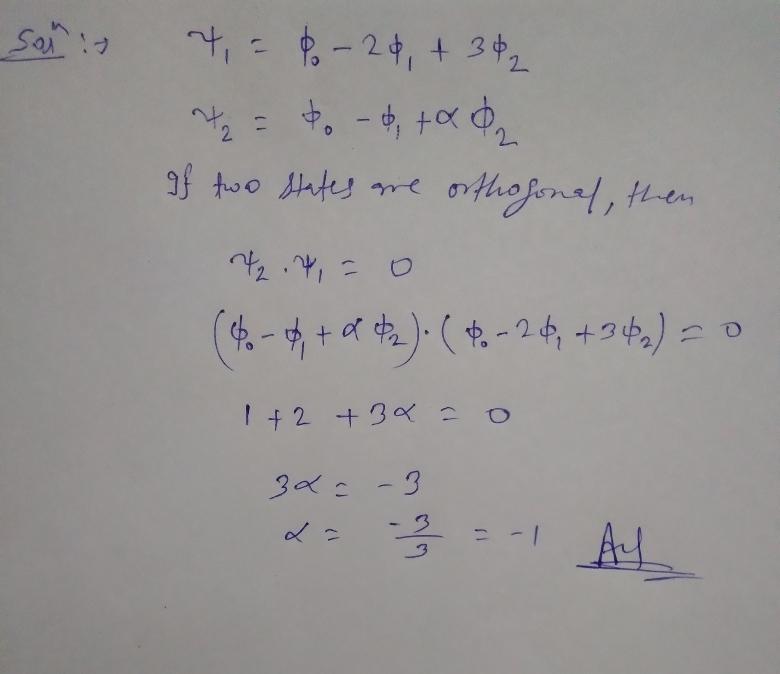 Solⁿ :→ ψ₁ = ϕ₀ - 2ϕ₁ + 3ϕ₂
ψ₂ = ϕ₀ - ϕ₁ + α ϕ₂
If two states are orthogonal, then
ψ₂ . ψ₁ = 0
(ϕ₀ - ϕ₁ + α ϕ₂) . (ϕ₀ - 2ϕ₁ + 3ϕ₂) = 0
1 + 2 + 3α = 0
3α = -3
α = -3/3 = -1 Ans